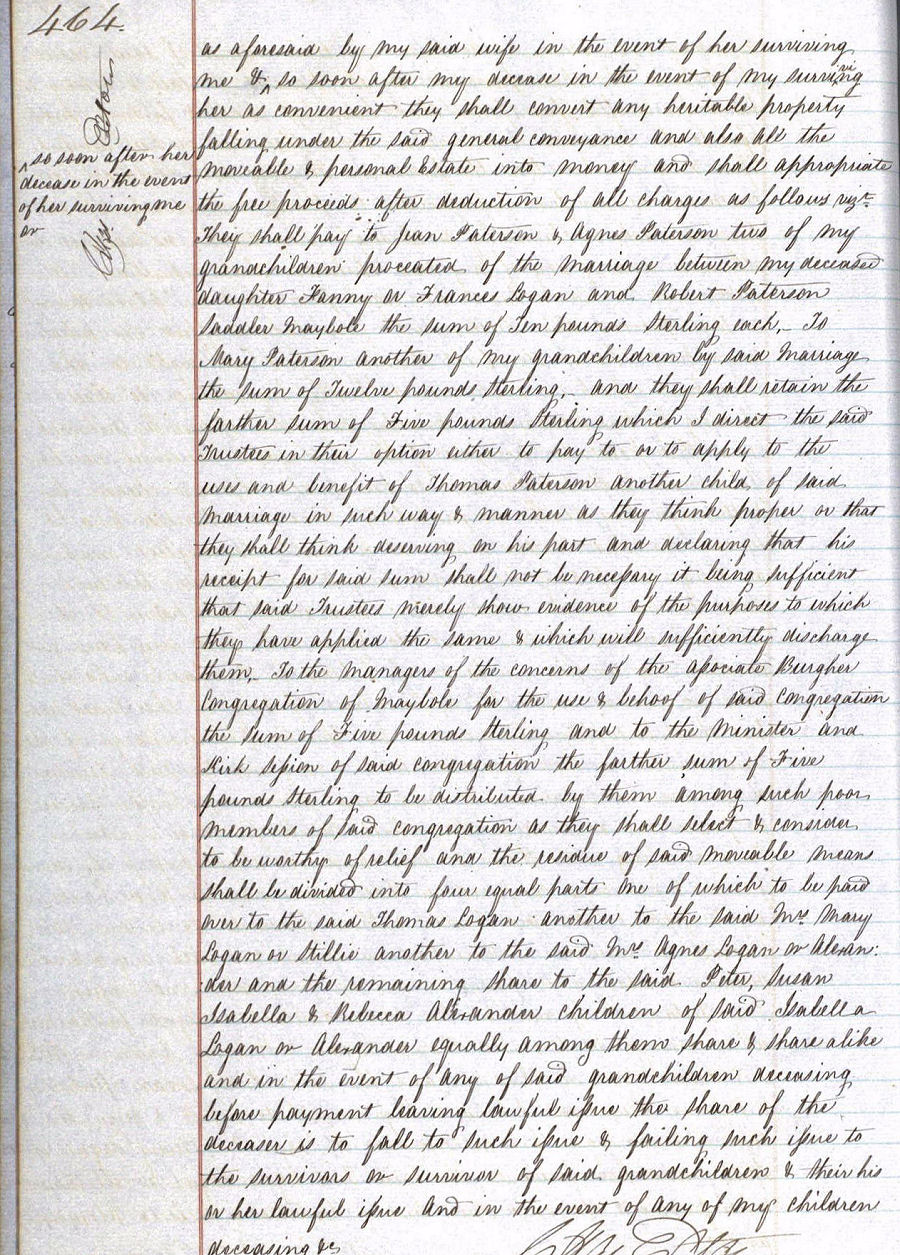 464.
‸ so soon after her
decease in the event
of her surviving me
or
as aforesaid by my said wife in the event of her surviving
me & ‸ so soon after my decease in the event of my surviving
her as convenient they shall convert any heritable property
falling under the said general conveyance and also all the
moveable & personal Estate into money and shall appropriate
the free proceeds after deduction of all charges as follows vizt.
They shall pay to Jean Paterson & Agnes Paterson two of my
grandchildren procreated of the marriage between my deceased
daughter Fanny or Frances Logan and Robert Paterson
Saddler Maybole the sum of Ten pounds Sterling each, – To
Mary Paterson another of my grandchildren by said Marriage
the sum of Twelve pounds Sterling, – and they shall retain the
farther sum of Five pounds Sterling which I direct the said
Trustees in their option either to pay to or to apply to the
uses and benefit of Thomas Paterson another child of said
marriage in such way & manner as they think proper or that
they shall think deserving on his part and declaring that his
receipt for said sum shall not be necessary it being sufficient
that said Trustees merely show evidence of the purposes to which
they have applied the same & which will sufficiently discharge
them – To the Managers of the concerns of the Associate Burgher
Congregation of Maybole for the use & behoof of said congregation
the sum of Five pounds Sterling and to the Minister and
Kirk session of said congregation the farther sum of Five
pounds Sterling to be distributed by them among such poor
members of said congregation as they shall select & consider
to be worthy of relief and the residue of said moveable means
shall be divided into four equal parts one of which to be paid
over to the said Thomas Logan another to the said Mrs. Mary
Logan or Stillie another to the said Mrs. Agnes Logan or Alexan:
der and the remaining share to the said Peter, Susan
Isabella & Rebecca Alexander children of said Isabella
Logan or Alexander equally among them share & share alike
and in the event of any of said grandchildren deceasing
before payment leaving lawful issue the share of the
deceaser is to fall to such issue & failing such issue to
the survivors or survivor of said grandchildren & their his
or her lawful issue and in the event of any of my children
deceasing &c